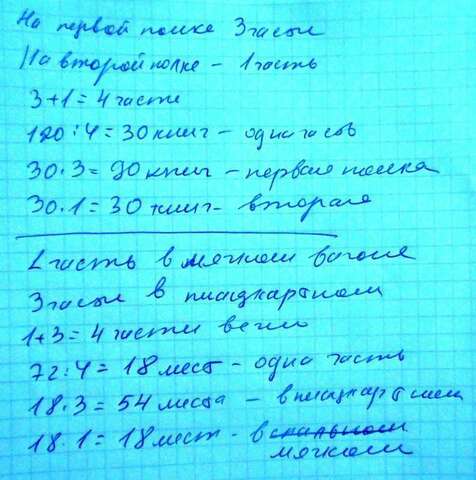 На первой полке 3 части
На второй полке - 1 часть
3+1=4 части
120:4=30 книг - одна часть
30·3=90 книг - первая полка
30·1=30 книг - вторая
1 часть в мягком вагоне
3 части в плацкартном
1+3=4 части всего
72:4=18 мест - одна часть
18·3=54 места - в плацкартном
18·1=18 мест - в спальном
мягком